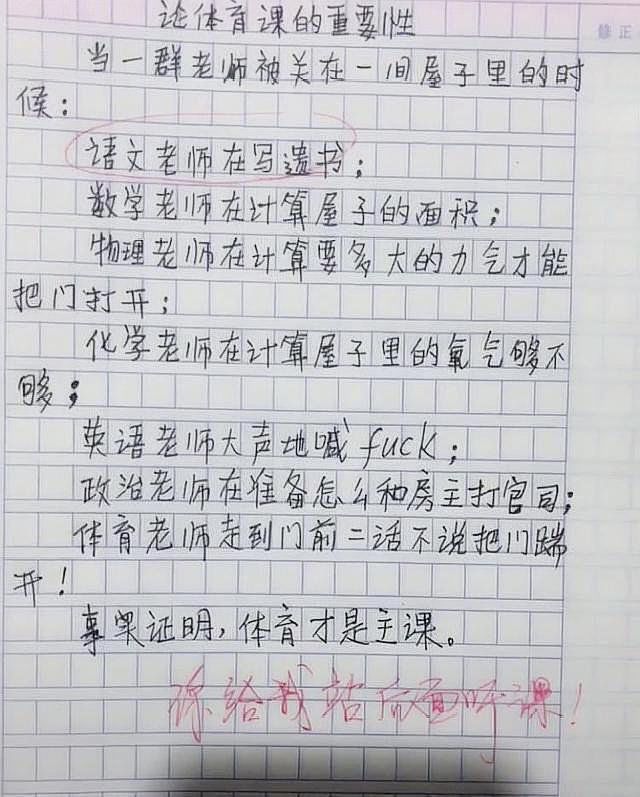 论体育课的重要性
当一群老师被关在一间屋子里的时
候:
语文老师在写遗书;
数学老师在计算屋子的面积;
物理老师在计算要多大的力气才能
把门打开;
化学老师在计算屋子里的氧气够不
够;
英语老师大声地喊fuck;
政治老师在准备怎么和房主打官司;
体育老师走到门前二话不说把门踹
开!
事实证明,体育才是主课。
你给我站后面听课!
修正